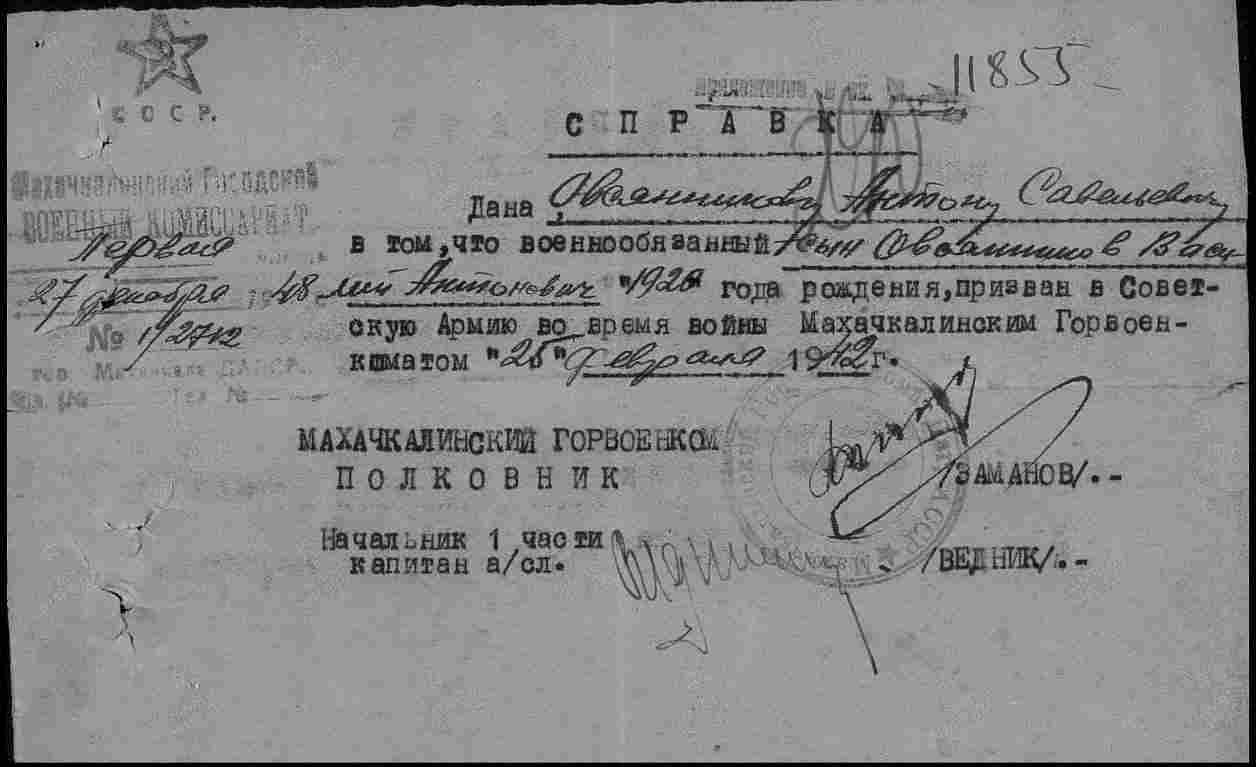 СССР.
11855
СПРАВКА
Махачкалинский Городской
ВОЕННЫЙ КОМИССАРИАТ
Дана Овсянникову Антону Савельевичу
Первая
в том,что военнообязанный сын Овсянников Васи
27 декабря 48
лий Антонович "1920 года рождения,призван в Совет-
№ 1/2742
скую Армию во время войны Махачкалинским Горвоен-
гор. Махачкала ДАССР.
коматом "25" февраля 1942г.
МАХАЧКАЛИНСКИЙ ГОРВОЕНКОМ
ПОЛКОВНИК
/ЗАМАНОВ/.-
Начальник 1 части
капитан а/сл.
/ВЕДНИК/.-